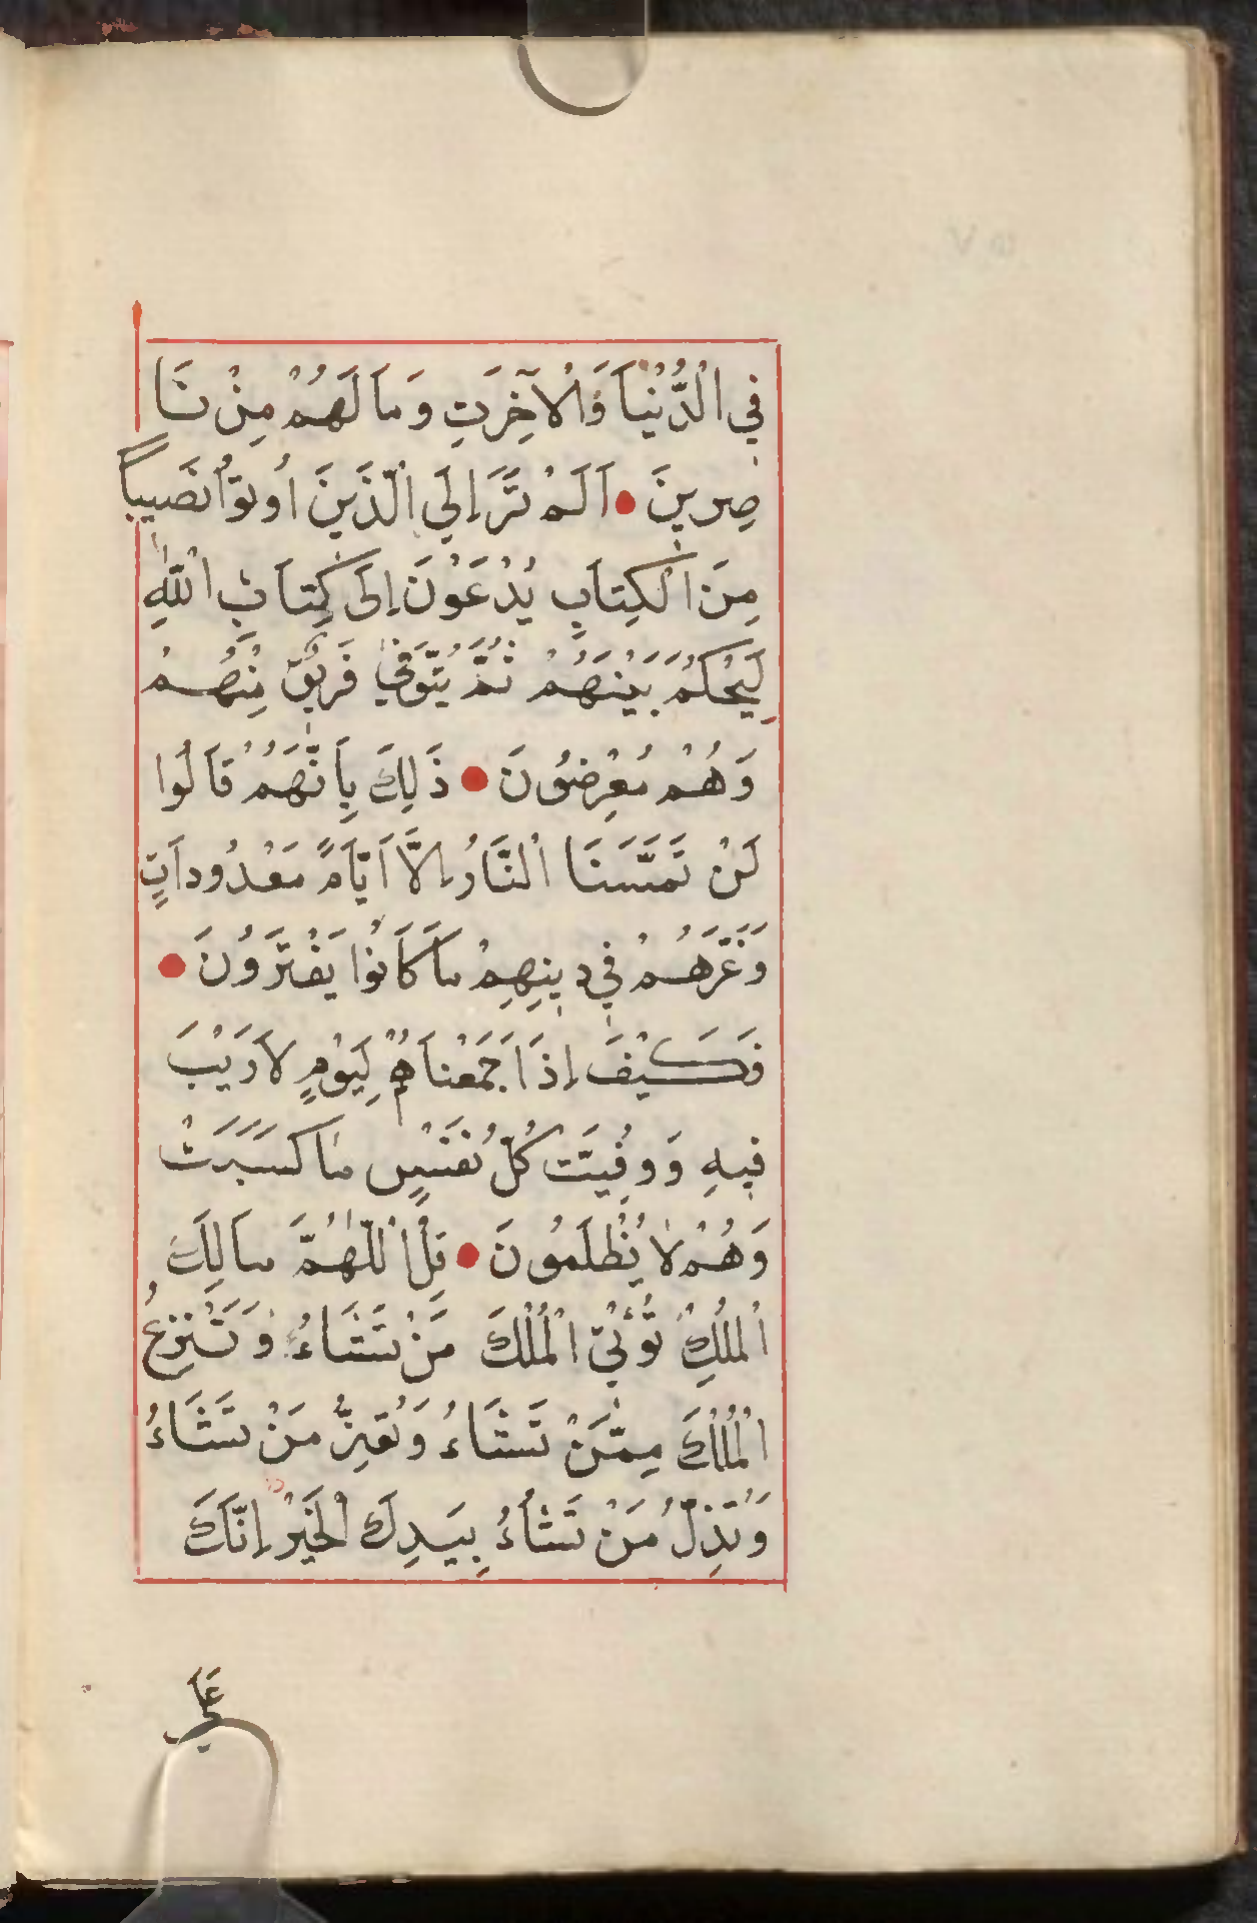 فِي الْدُّنْيَا وَالْاخِرَتِ وَمَا لَهُمْ مِنْ نَا
صِرِينَ ● اَلَمْ تَرَ اِلَي الَّذَينَ اُوتوُا نَصَيباً
مِنَ الْكِتاَبِ يُدْعَوْنَ اِلَى كِتاَبِ اللّٰهِ
لِيَحْكُمَ بَيْنَهُمْ ثُمَّ يُتَوَلّي فَرِيقٌ مِنْهُمْ
وَهُمْ مُعْرِضوُنَ ● ذَلِكَ بِاَنَّهُمْ قَالُوا
لَنْ تَمَسَّنَا الْنَّارُ اِلَّا اَيّاَمً مَعْدُوداَتٍ
وَغَرَّهُمْ فِي دِينِهِمْ ماَ كاَنوُا يَفْتَرَوُنَ ●
فَكَيْفَ اِذَا جَمَعْناَهُمْ لِيَوْمٍ لاَرَيْبَ
فِيهِ وَوفُيَِت كُلّ نُفَسٍ ماَ كَسَبَتْ
وَهُمْ لا يُظْلَموُنَ ● قلِ الْلّٰهُمَّ ماَلِكَ
الْملُكِ تُؤْتِيّ الْمُلْكَ مَنْ تَشَاءُ وَتَنْزِعُ
الْمُلْكَ مِمَّنْ تَشَاءُ وَتُعِزُّ مَنْ تَشَاءُ
وَتُذِلّ مَنْ تَشاَءُ بِيَدِكَ الْخَيْرُ اِنَّكَ
عَلَي